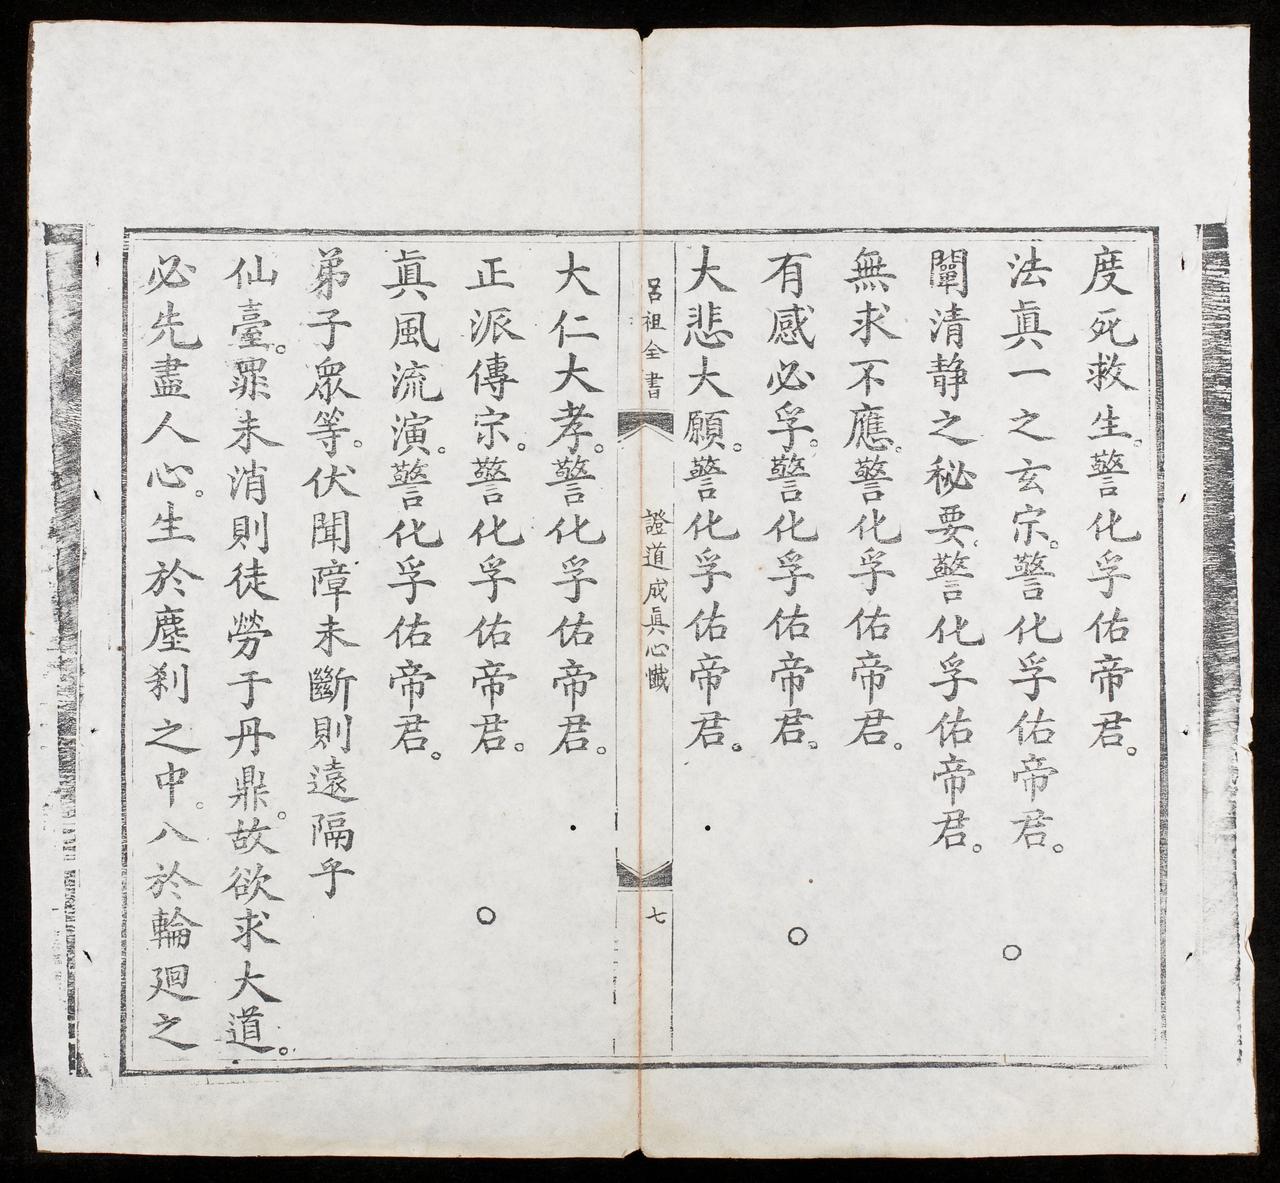 度死救生。警化孚佑帝君。
法眞一之玄宗。警化孚佑帝君。
闡清靜之秘要。警化孚佑帝君。
無求不應。警化孚佑帝君。
有感必孚。警化孚佑帝君。
大悲大願。警化孚佑帝君。
呂祖全書
證道成眞心懺
七
大仁大孝。警化孚佑帝君。
正派傳宗。警化孚佑帝君。
眞風流演。警化孚佑帝君。
弟子衆等。伏聞障未斷則遠隔乎
仙臺。罪未消則徒勞于丹鼎。故欲求大道。
必先盡人心。生於塵刹之中。八於輪廻之